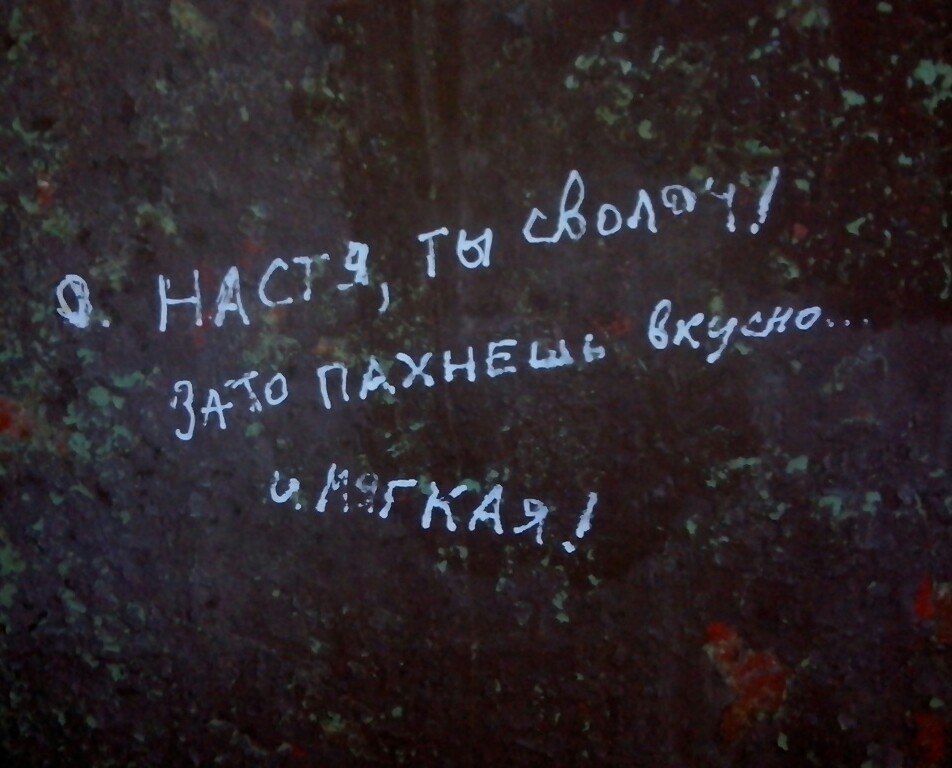 О. НАСТЯ, ТЫ СВОЛОЧ!
ЗАТО ПАХНЕШЬ вкусно...
и МЯГКАЯ!